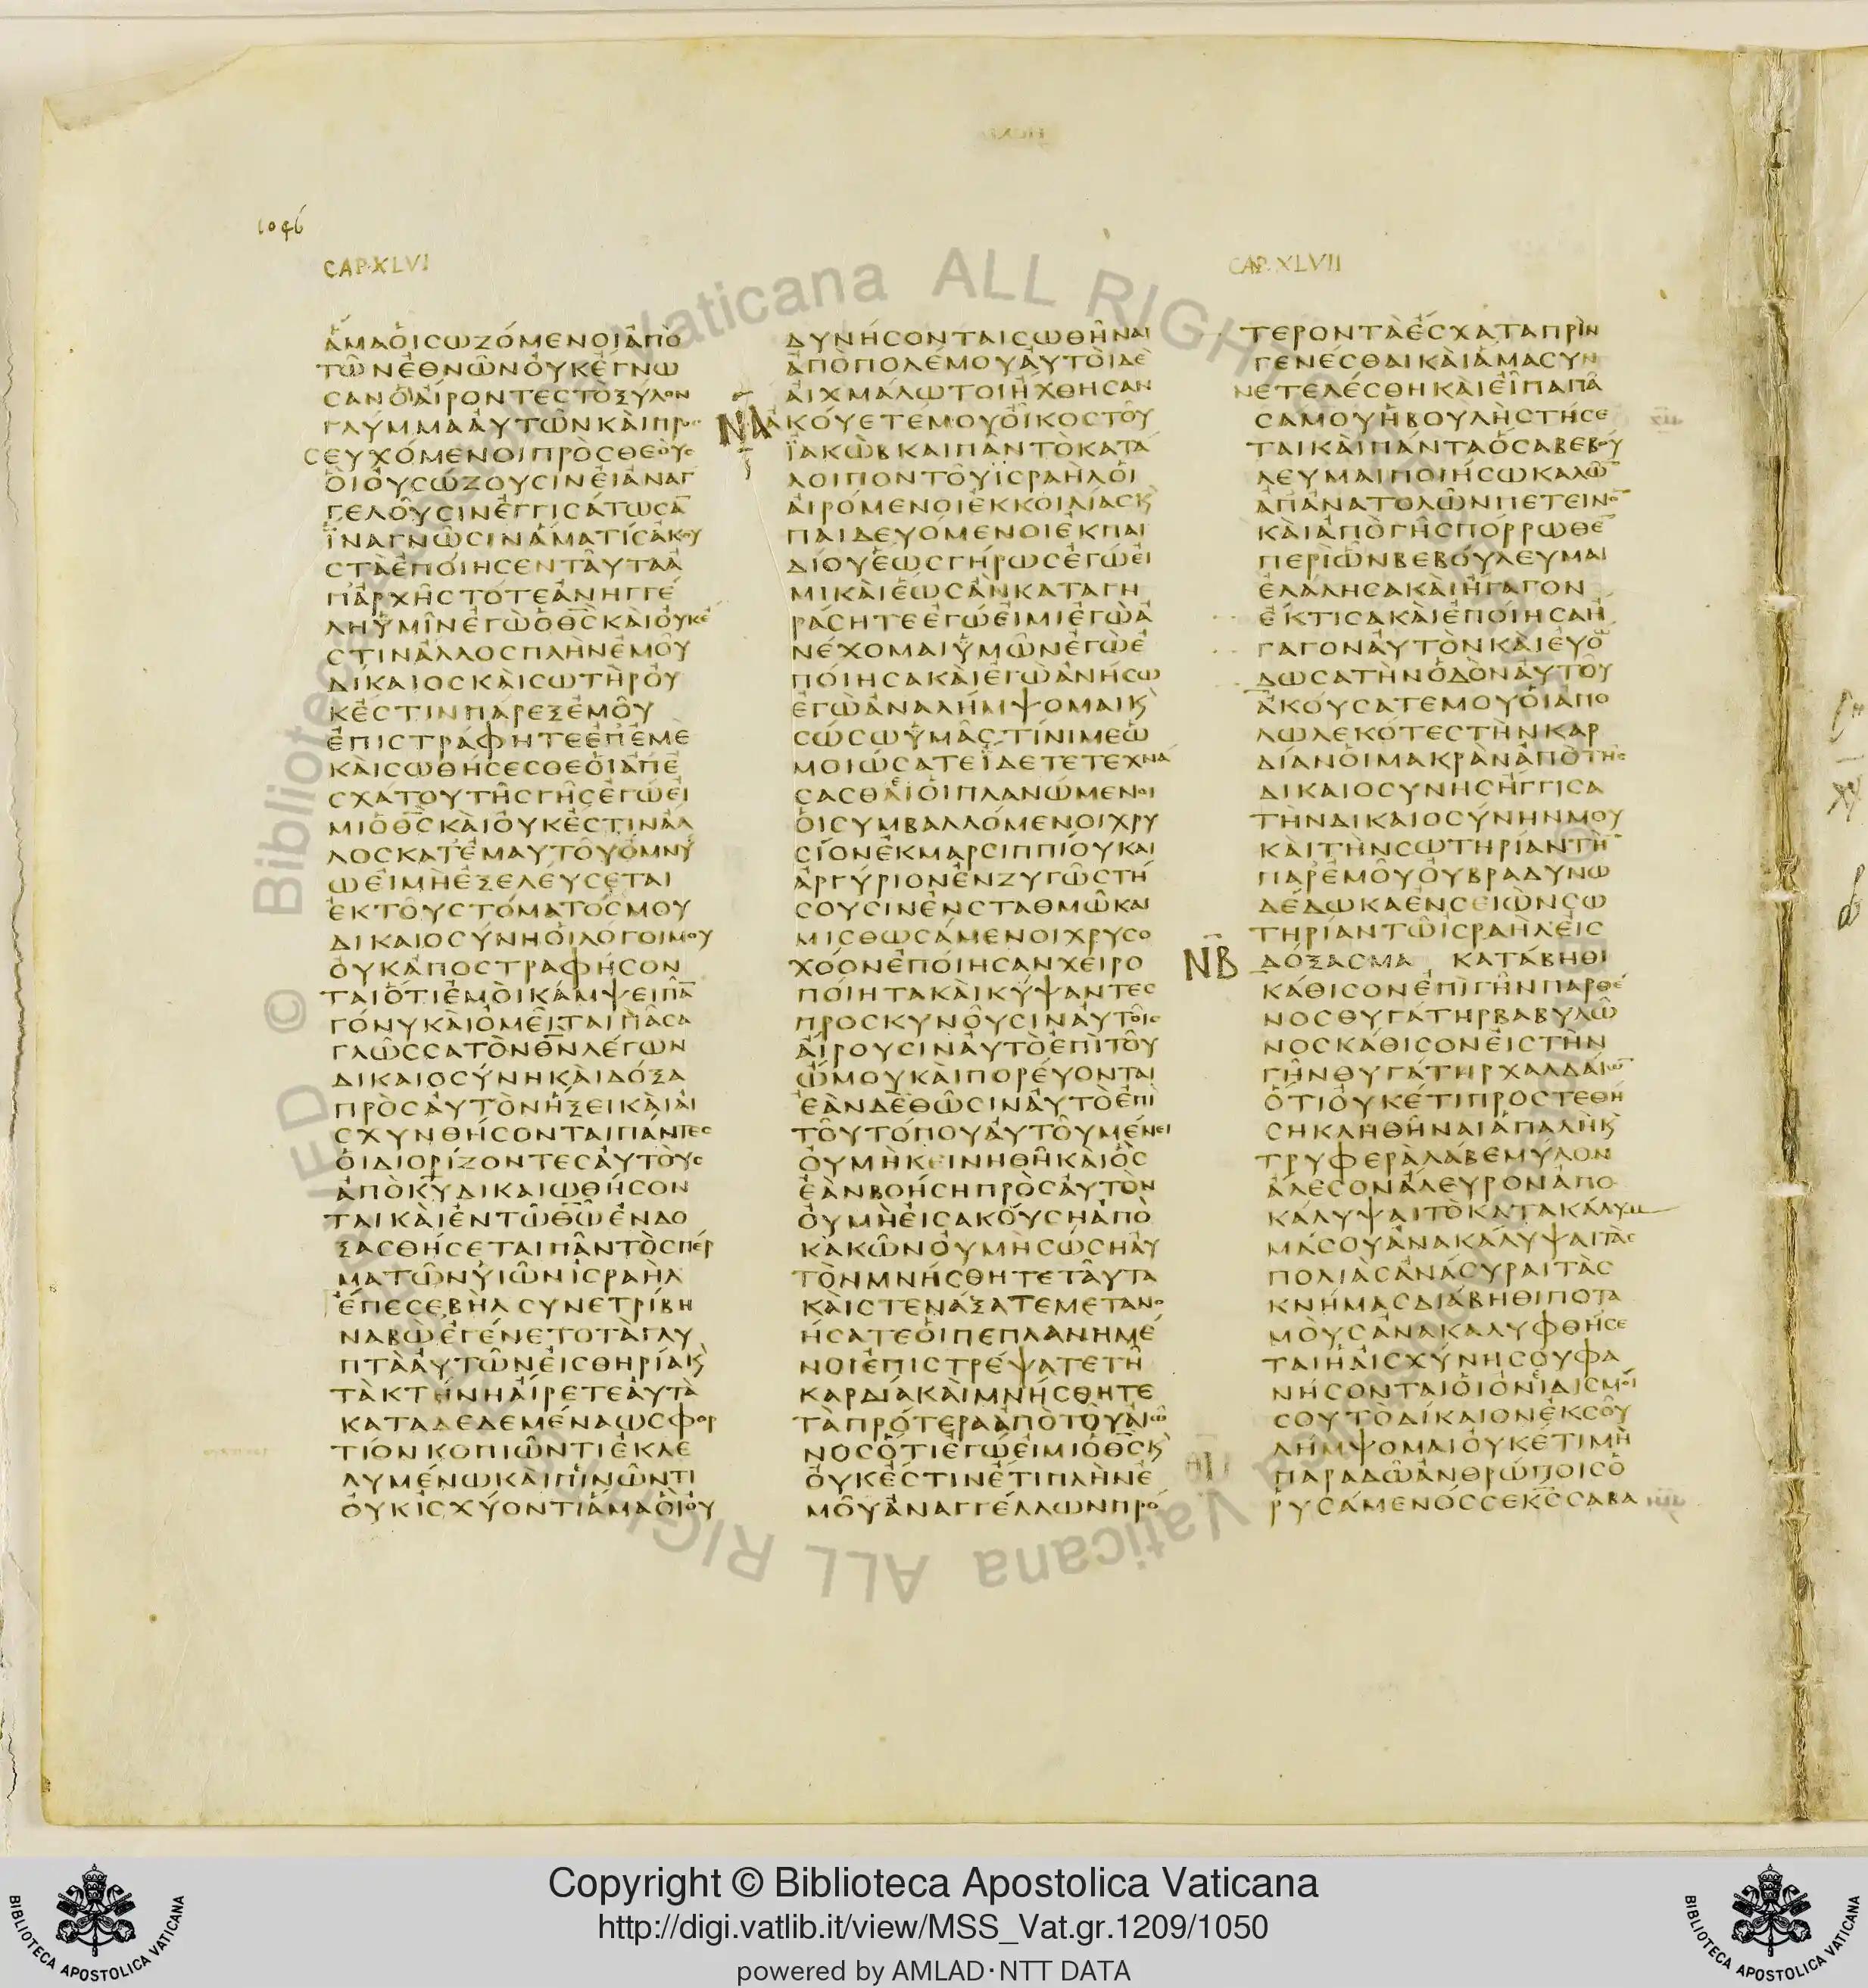 1046
CAP. XLVI
ΑΜΑΟΙСΩΖΟΜΕΝΟΙΑΠΟ
ΤΩΝΕΘΝΩΝΟΥΚΕΓΝΩ
СΑΝΟΙΑΙΡΟΝΤΕСΤΟΞΥΛΟΝ
ΓΛΥΜΜΑΑΥΤΩΝΚΑΙΠΡΟ
СΕΥΧΟΜΕΝΟΙΠΡΟСΘΕΟΥС
ΟΙΟΥСΩΖΟΥСΙΝΕΙΑΝΑΓ
ΓΕΛΟΥСΙΝΕΓΓΙСΑΤΩСΑ̅
ΙΝΑΓΝΩСΙΝΑΜΑΤΙСΑΚΟΥ
СΤΑΕΠΟΙΗСΕΝΤΑΥΤΑΑ
ΠΑΡΧΗСΤΟΤΕΑΝΗΓΓΕ
ΛΗΥΜΙΝΕΓΩΟΘ̅С̅ΚΑΙΟΥΚΕ
СΤΙΝΑΛΛΟСΠΛΗΝΕΜΟΥ
ΔΙΚΑΙΟСΚΑΙСΩΤΗΡΟΥ
ΚΕСΤΙΝΠΑΡΕΞΕΜΟΥ
ΕΠΙСΤΡΑΦΗΤΕΕΠΕΜΕ
ΚΑΙСΩΘΗСΕСΘΕΟΙΑΠΕ
СΧΑΤΟΥΤΗСΓΗСΕΓΩΕΙ
ΜΙΟΘ̅С̅ΚΑΙΟΥΚΕСΤΙΝΑΛ
ΛΟСΚΑΤΕΜΑΥΤΟΥΟΜΝΥ
ΩΕΙΜΗΕΞΕΛΕΥСΕΤΑΙ
ΕΚΤΟΥСΤΟΜΑΤΟСΜΟΥ
ΔΙΚΑΙΟСΥΝΗΟΙΛΟΓΟΙΜΟΥ
ΟΥΚΑΠΟСΤΡΑΦΗСΟΝ
ΤΑΙΟΤΙΕΜΟΙΚΑΜΨΕΙΠΑ̅
ΓΟΝΥΚΑΙΟΜΕΙΤΑΙΠΑСΑ
ΓΛΩССΑΤΟΝΘ̅Ν̅ΛΕΓΩΝ
ΔΙΚΑΙΟСΥΝΗΚΑΙΔΟΞΑ
ΠΡΟСΑΥΤΟΝΗΞΕΙΚΑΙΑΙ
СΧΥΝΘΗСΟΝΤΑΙΠΑΝΤΕС
ΟΙΔΙΟΡΙΖΟΝΤΕСΑΥΤΟΥС
ΑΠΟΚ̅Υ̅ΔΙΚΑΙΩΘΗСΟΝ
ΤΑΙΚΑΙΕΝΤΩΘ̅Ω̅ΕΝΔΟ
ΞΑСΘΗСΕΤΑΙΠΑΝΤΟСΠΕΡ
ΜΑΤΩΝΥΙΩΝΙСΡΑΗΛ
ΕΠΕСΕΒΗΛСΥΝΕΤΡΙΒΗ
ΝΑΒΩΕΓΕΝΕΤΟΤΑΓΛΥ
ΠΤΑΑΥΤΩΝΕΙСΘΗΡΙΑΚ̀
ΤΑΚΤΗΝΗΑΙΡΕΤΕΑΥΤΑ
ΚΑΤΑΔΕΔΕΜΕΝΑΩСΦΟΡ
ΤΙΟΝΚΟΠΙΩΝΤΙΕΚΛΕ
ΛΥΜΕΝΩΚΑΙΠΙΝΩΝΤΙ
ΟΥΚΙСΧΥΟΝΤΙΑΜΑΟΙΟΥ
ΔΥΝΗСΟΝΤΑΙСΩΘΗΝΑΙ
ΑΠΟΠΟΛΕΜΟΥΑΥΤΟΙΔΕ
ΑΙΧΜΑΛΩΤΟΙΗΧΘΗСΑΝ
ΝΑ ΑΚΟΥΕΤΕΜΟΥΟΙΚΟСΤΟΥ
ΪΑΚΩΒΚΑΙΠΑΝΤΟΚΑΤΑ
ΛΟΙΠΟΝΤΟΥΙСΡΑΗΛΟΙ
ΑΙΡΟΜΕΝΟΙΕΚΚΟΙΛΙΑСΚ̀
ΠΑΙΔΕΥΟΜΕΝΟΙΕΚΠΑΙ
ΔΙΟΥΕΩСΓΗΡΩСΕΓΩΕΙ
ΜΙΚΑΙΕΩСΑΝΚΑΤΑΓΗ
ΡΑСΗΤΕΕΓΩΕΙΜΙΕΓΩΑ
ΝΕΧΟΜΑΙΥΜΩΝΕΓΩΕ
ΠΟΙΗСΑΚΑΙΕΓΩΑΝΗСΩ
ΕΓΩΑΝΑΛΗΜΨΟΜΑΙΚ̀
СΩСΩΥΜΑСΤΙΝΙΜΕΩ
ΜΟΙΩСΑΤΕΪΔΕΤΕΤΕΧΝΑ
СΑСΘΑΙΟΙΠΛΑΝΩΜΕΝΟΙ
ΟΙСΥΜΒΑΛΛΟΜΕΝΟΙΧΡΥ
СΙΟΝΕΚΜΑΡСΙΠΠΙΟΥΚΑΙ
ΑΡΓΥΡΙΟΝΕΝΖΥΓΩСΤΗ
СΟΥСΙΝΕΝСΤΑΘΜΩΚΑΙ
ΜΙСΘΩСΑΜΕΝΟΙΧΡΥСΟ
ΧΟΟΝΕΠΟΙΗСΑΝΧΕΙΡΟ
ΠΟΙΗΤΑΚΑΙΚΥΨΑΝΤΕС
ΠΡΟСΚΥΝΟΥСΙΝΑΥΤΟΙС
ΑΙΡΟΥСΙΝΑΥΤΟΕΠΙΤΟΥ
ΩΜΟΥΚΑΙΠΟΡΕΥΟΝΤΑΙ
ΕΑΝΔΕΘΩСΙΝΑΥΤΟΕΠΙ
ΤΟΥΤΟΠΟΥΑΥΤΟΥΜΕΝΕΙ
ΟΥΜΗΚΕΙΝΗΘΗΚΑΙΟС
ΕΑΝΒΟΗСΗΠΡΟСΑΥΤΟΝ
ΟΥΜΗΕΙСΑΚΟΥСΗΑΠΟ
ΚΑΚΩΝΟΥΜΗСΩСΗΑΥ
ΤΟΝΜΝΗСΘΗΤΕΤΑΥΤΑ
ΚΑΙСΤΕΝΑΞΑΤΕΜΕΤΑΝΟ
ΗСΑΤΕΟΙΠΕΠΛΑΝΗΜΕ
ΝΟΙΕΠΙСΤΡΕΨΑΤΕΤΗ
ΚΑΡΔΙΑΚΑΙΜΝΗСΘΗΤΕ
ΤΑΠΡΟΤΕΡΑΑΠΟΤΟΥΑΙΩ̅
ΝΟСΟΤΙΕΓΩΕΙΜΙΟΘ̅С̅Κ̀
ΟΥΚΕСΤΙΝΕΤΙΠΛΗΝΕ
ΜΟΥΑΝΑΓΓΕΛΛΩΝΠΡΟ
CAP. XLVII
ΤΕΡΟΝΤΑΕСΧΑΤΑΠΡΙΝ
ΓΕΝΕСΘΑΙΚΑΙΑΜΑСΥΝ
ΝΕΤΕΛΕСΘΗΚΑΙΕΙΠΑΠΑ
СΑΜΟΥΗΒΟΥΛΗСΤΗСΕ
ΤΑΙΚΑΙΠΑΝΤΑΟСΑΒΕΒΟΥ
ΛΕΥΜΑΙΠΟΙΗСΩΚΑΛΩ̅
ΑΠΑΝΑΤΟΛΩΝΠΕΤΕΙΝΟ̅
ΚΑΙΑΠΟΓΗСΠΟΡΡΩΘΕ̅
ΠΕΡΙΩΝΒΕΒΟΥΛΕΥΜΑΙ
ΕΛΑΛΗСΑΚΑΙΗΓΑΓΟΝ
ΕΚΤΙСΑΚΑΙΕΠΟΙΗСΑΗ
ΓΑΓΟΝΑΥΤΟΝΚΑΙΕΥΟ
ΔΩСΑΤΗΝΟΔΟΝΑΥΤΟΥ
ΑΚΟΥСΑΤΕΜΟΥΟΙΑΠΟ
ΛΩΛΕΚΟΤΕСΤΗΝΚΑΡ
ΔΙΑΝΟΙΜΑΚΡΑΝΑΠΟΤΗС
ΔΙΚΑΙΟСΥΝΗСΗΓΓΙСΑ
ΤΗΝΔΙΚΑΙΟСΥΝΗΝΜΟΥ
ΚΑΙΤΗΝСΩΤΗΡΙΑΝΤΗ̅
ΠΑΡΕΜΟΥΟΥΒΡΑΔΥΝΩ
ΔΕΔΩΚΑΕΝСΕΙΩΝСΩ
ΤΗΡΙΑΝΤΩΙСΡΑΗΛΕΙС
ΝΒ ΔΟΞΑСΜΑ ΚΑΤΑΒΗΘΙ
ΚΑΘΙСΟΝΕΠΙΓΗΝΠΑΡΘΕ
ΝΟСΘΥΓΑΤΗΡΒΑΒΥΛΩ
ΝΟСΚΑΘΙСΟΝΕΙСΤΗΝ
ΓΗΝΘΥΓΑΤΗΡΧΑΛΔΑΙΩ̅
ΟΤΙΟΥΚΕΤΙΠΡΟСΤΕΘΗ
СΗΚΛΗΘΗΝΑΙΑΠΑΛΗΚ̀
ΤΡΥΦΕΡΑΛΑΒΕΜΥΛΟΝ
ΑΛΕСΟΝΑΛΕΥΡΟΝΑΠΟ
ΚΑΛΥΨΑΙΤΟΚΑΤΑΚΑΛΥΜ
ΜΑСΟΥΑΝΑΚΑΛΥΨΑΙΤΑС
ΠΟΛΙΑСΑΝΑСΥΡΑΙΤΑС
ΚΝΗΜΑСΔΙΑΒΗΘΙΠΟΤΑ
ΜΟΥСΑΝΑΚΑΛΥΦΘΗСΕ
ΤΑΙΗΑΙСΧΥΝΗСΟΥΦΑ
ΝΗСΟΝΤΑΙΟΙΟΝΙΔΙСΜΟΙ
СΟΥΤΟΔΙΚΑΙΟΝΕΚСΟΥ
ΛΗΜΨΟΜΑΙΟΥΚΕΤΙΜΗ
ΠΑΡΑΔΩΑΝΘΡΩΠΟΙСΟ
ΡΥСΑΜΕΝΟССΕΚ̅С̅СΑΒΑ
Copyright © Biblioteca Apostolica Vaticana
http://digi.vatlib.it/view/MSS_Vat.gr.1209/1050
powered by AMLAD·NTT DATA
BIBLIOTECA APOSTOLICA VATICANA
BIBLIOTECA APOSTOLICA VATICANA